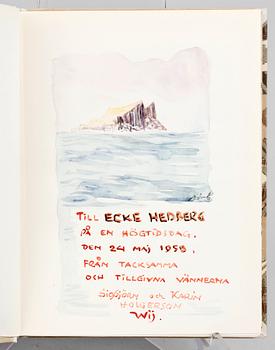 TILL ECKE HEDBERG
PÅ EN HÖGTIDSDAG.
DEN 24 MAJ 1958.
FRÅN TACKSAMMA
OCH TILLGIVNA VÄNNERNA
SIGBJÖRN OCH KARIN
HOLGERSON
WIJ.